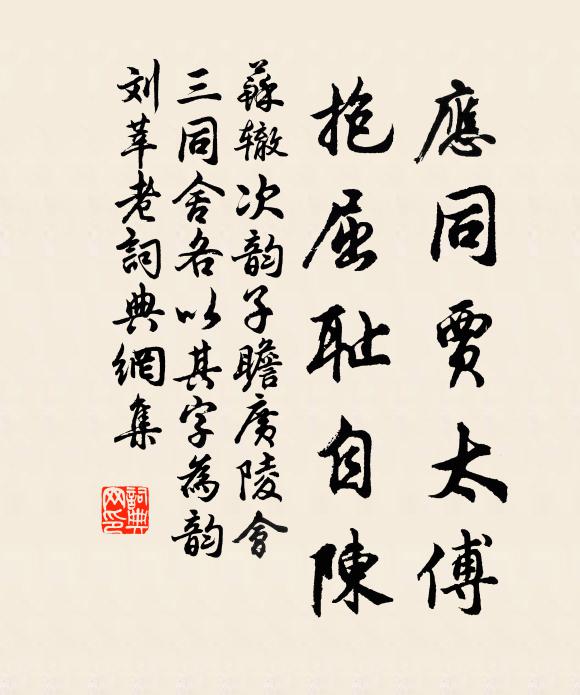 應同賈太傅
抱屈耻自陳
蘇辙次韵子瞻廣陵會
三同舍各以其字為韵
刘莘老詞典網集
詞典网印